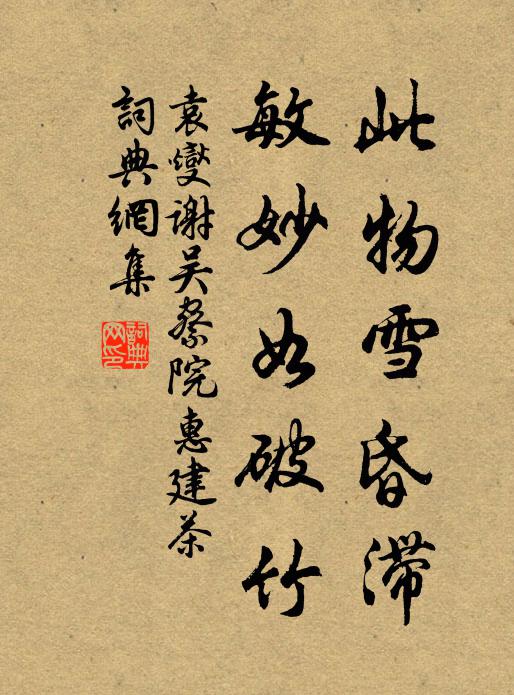 此物雪昏滯
敏妙如破竹
袁燮謝吳察院惠建茶
詞典網集
詞典網印